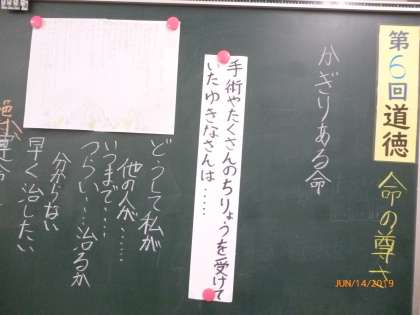 第6回道徳
命の尊さ
かぎりある命
手術やたくさんのちりょうを受けて
いたゆきなさんは……
どうして私が
他の人が……
いつまで……
つらい…治るか
分からない
早く治したい
JUN/14/2019